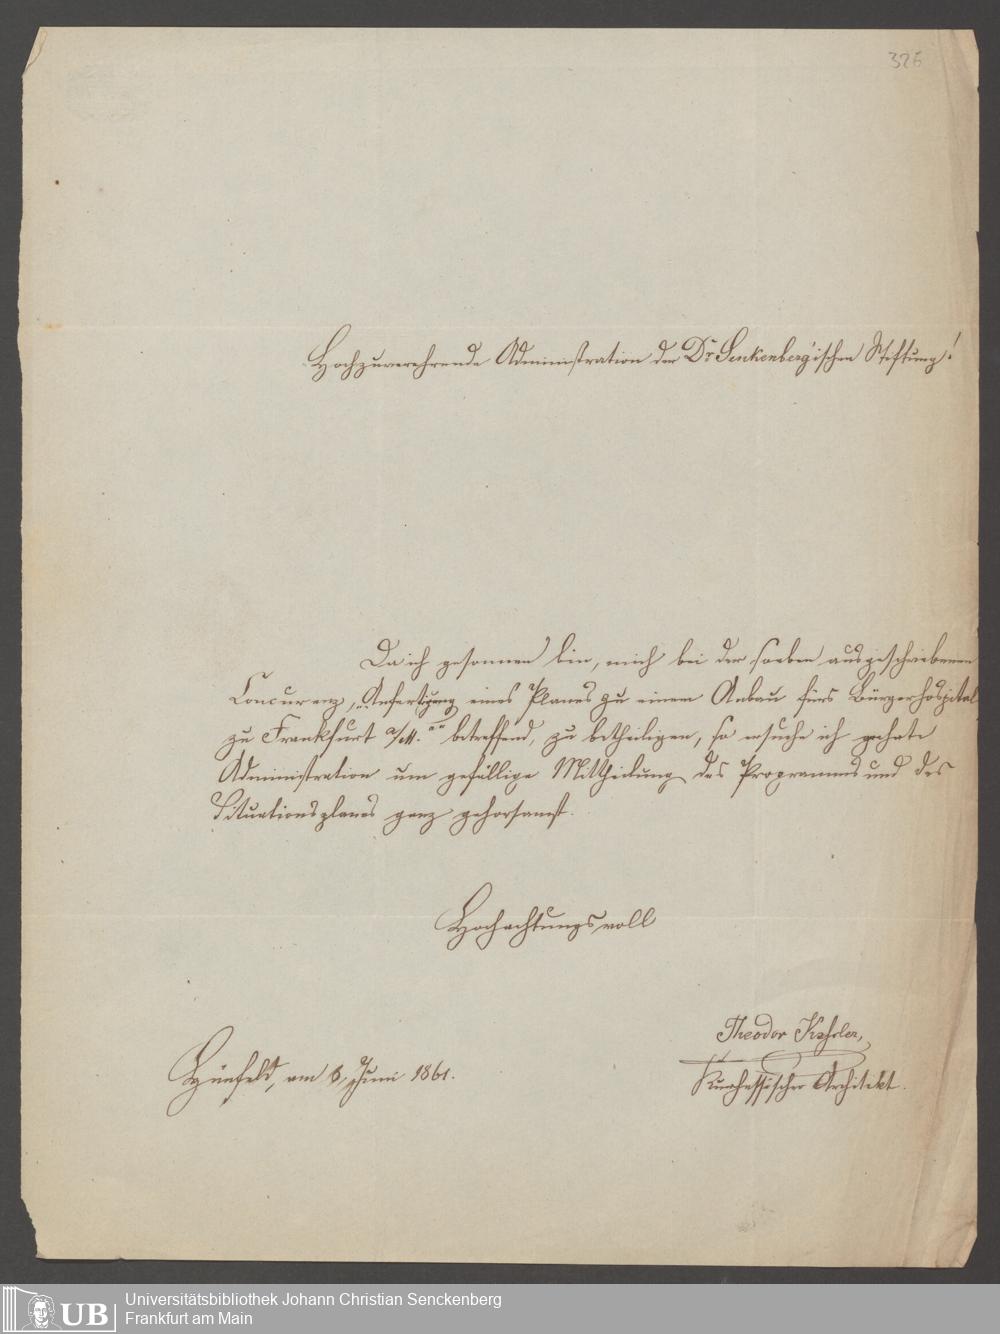 326
Hochzuverehrende Administration der Dr Senkenberg'ischen Stiftung!
Da ich gesonnen bin, mich bei der soeben ausgeschriebenen
Concurenz, „Anfertigung eines Planes zu einem Anbau fürs Bürgerhospital
zu Frankfurt a/M." betreffend, zu betheiligen, so ersuche ich geehrte
Administration um gefällige Mittheilung des Programms und des
Situationsplanes ganz gehorsamst.
Hochachtungsvoll
Theodor
Hünfeld, am 8, Juni 1861.
Kurhessischer Architekt.
Universitätsbibliothek Johann Christian Senckenberg
UB
Frankfurt am Main